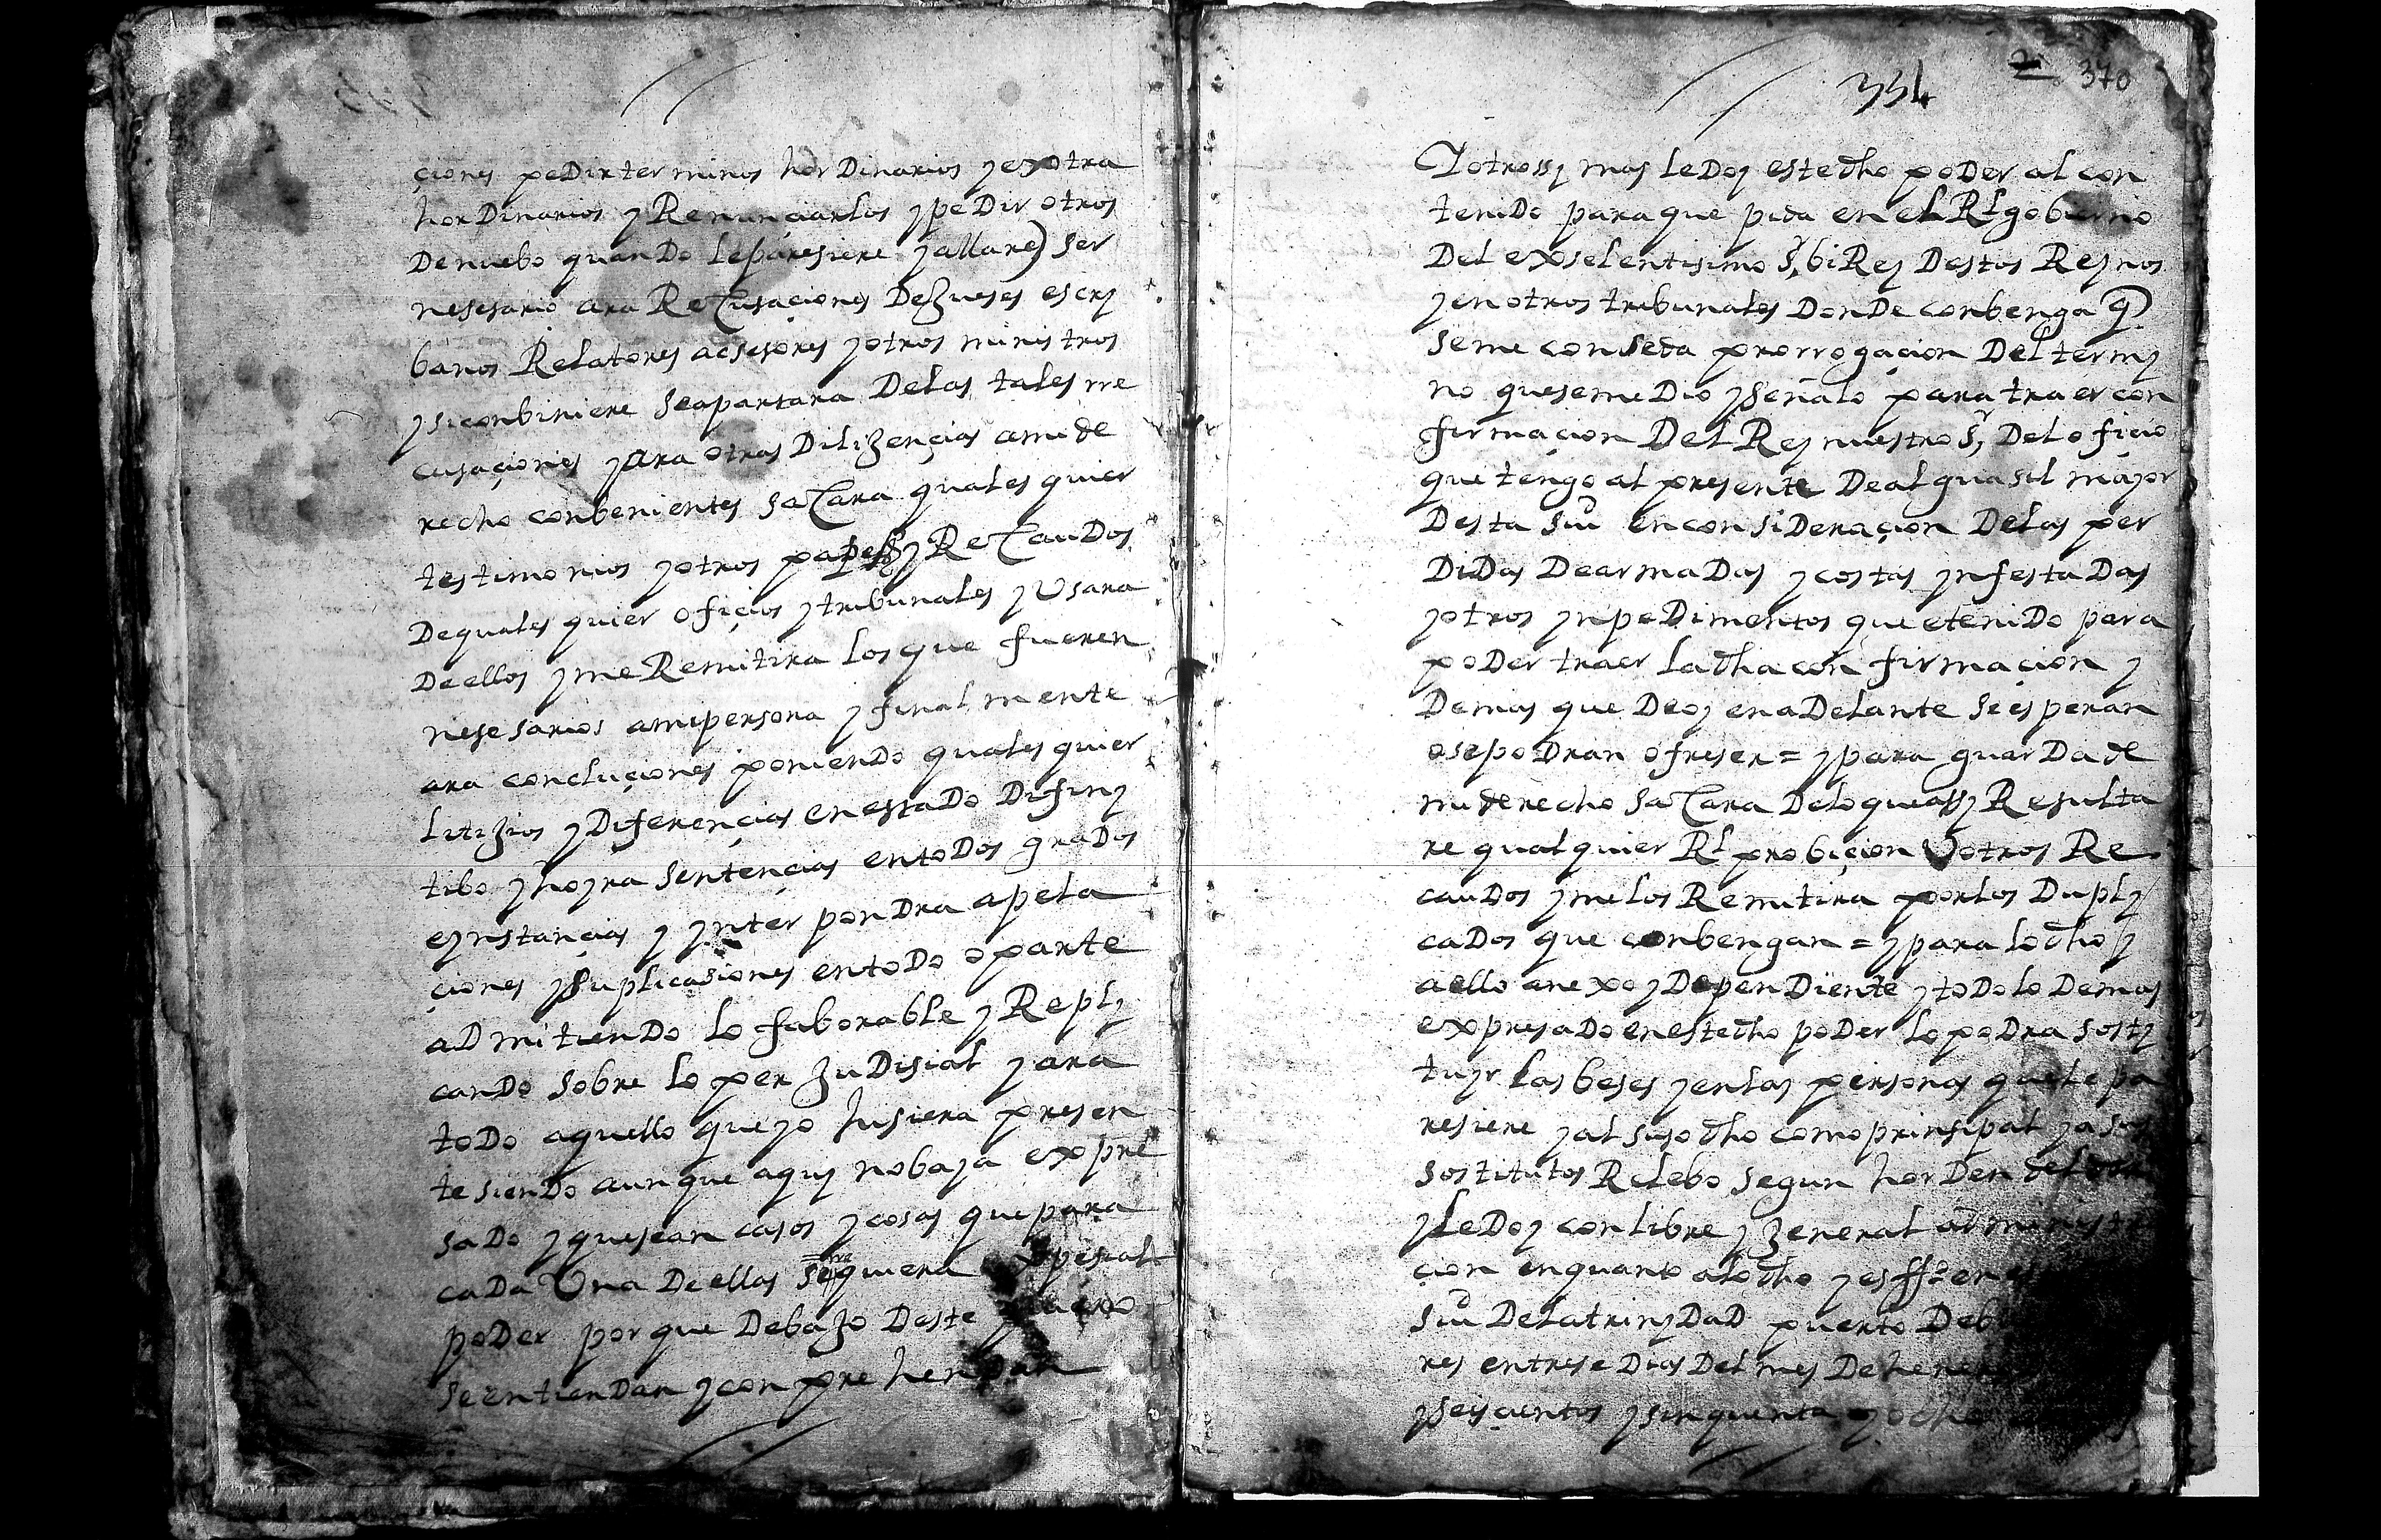 çiones pedir terminos hordinarios y extra
hordinarios y Renunçiarlos y pedir otros
de nuebo quando le paresiere y allare ser
nesesario ara Recusaçiones de Jueses escry
banos Relatores acsesores y otros ministros
y si conbiniere se apartara de las tales rre
cusaçiones y ara otras dilijençias a mi de
recho conbenientes sacara quales quier
testimonios y otros papeles y Recaudos
de quales quier ofiçios y tribunales y Usara
de ellos y me Remitira los que fueren
nesesarios a mi persona y finalmente
ara concluçiones poniendo quales quier
litijios y diferençias en estado difiny
tibo y hoyra sentençias en todos grados
e ynstançias y ynterpondra apela
çiones y suplicasiones en todo o parte
admitiendo lo faborable y Reply
cando sobre lo perjudisial y ara
todo aquello que yo hisiera presen
te siendo aunque aquy no baya expre
sado y que sean casos y cosas que para
cada Una de ellas se rrequiera espesial
poder por que debajo deste
se entiendan y conprehendan
334
2
370
Y otrossy mas le doy este dho poder al con
tenido para que pida en el Rl gobierno
del exselentisimo Sr biRey destos Reynos
y en otros tribunales donde conbenga q
se me conseda prorrogaçion del termy
no que se me dio y señalo para traer con
firmaçion del Rey nuestro Sr del ofiçio
que tengo al presente de alguasil mayor
desta Siu en consideraçion de las per
didas de armadas y costas ynfestadas
y otros ynpedimentos que e tenido para
poder traer la dha confirmaçion y
demas que de oy en adelante se esperan
o se podran ofreser = y para guarda de
mi derecho sacara de lo que assy Resulta
re qualquier Rl probiçion U otros Re
caudos y me los Remitira por los duply
cados que conbengan = y para lo dho y
a ello anexo y dependiente y todo lo demas
expresado en este dho poder lo podra sosty
tuyr las beses y en las personas que le pa
resiere y al suso dho como prinsipal y a sus
sostitutos Relebo segun horden
y le doy con libre y jeneral administra
çion en quanto a lo dho y es ffo en
Siu de la trinydad puerto de bu
res en trese dias del mes de henero
y seisçientos y sinquenta y ocho